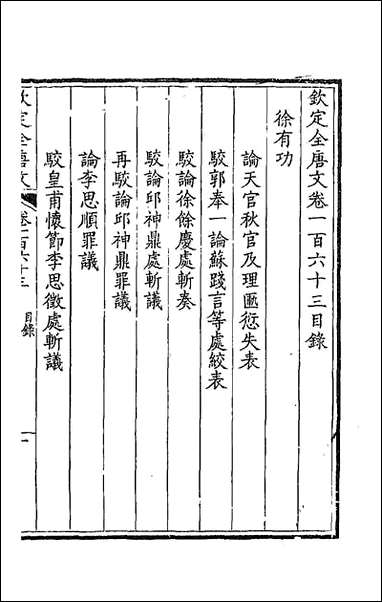 欽定全唐文卷一百六十三目錄
徐有功
論天官秋官及理匭愆失表
駮郭奉一論蘇踐言等處絞表
駮論徐餘慶處斬奏
駮論邱神鼎處斬議
再駮論邱神鼎罪議
論李思順罪議
駮皇甫懷節李思徵處斬議
欽定全唐文
卷一百六十三
目錄
一